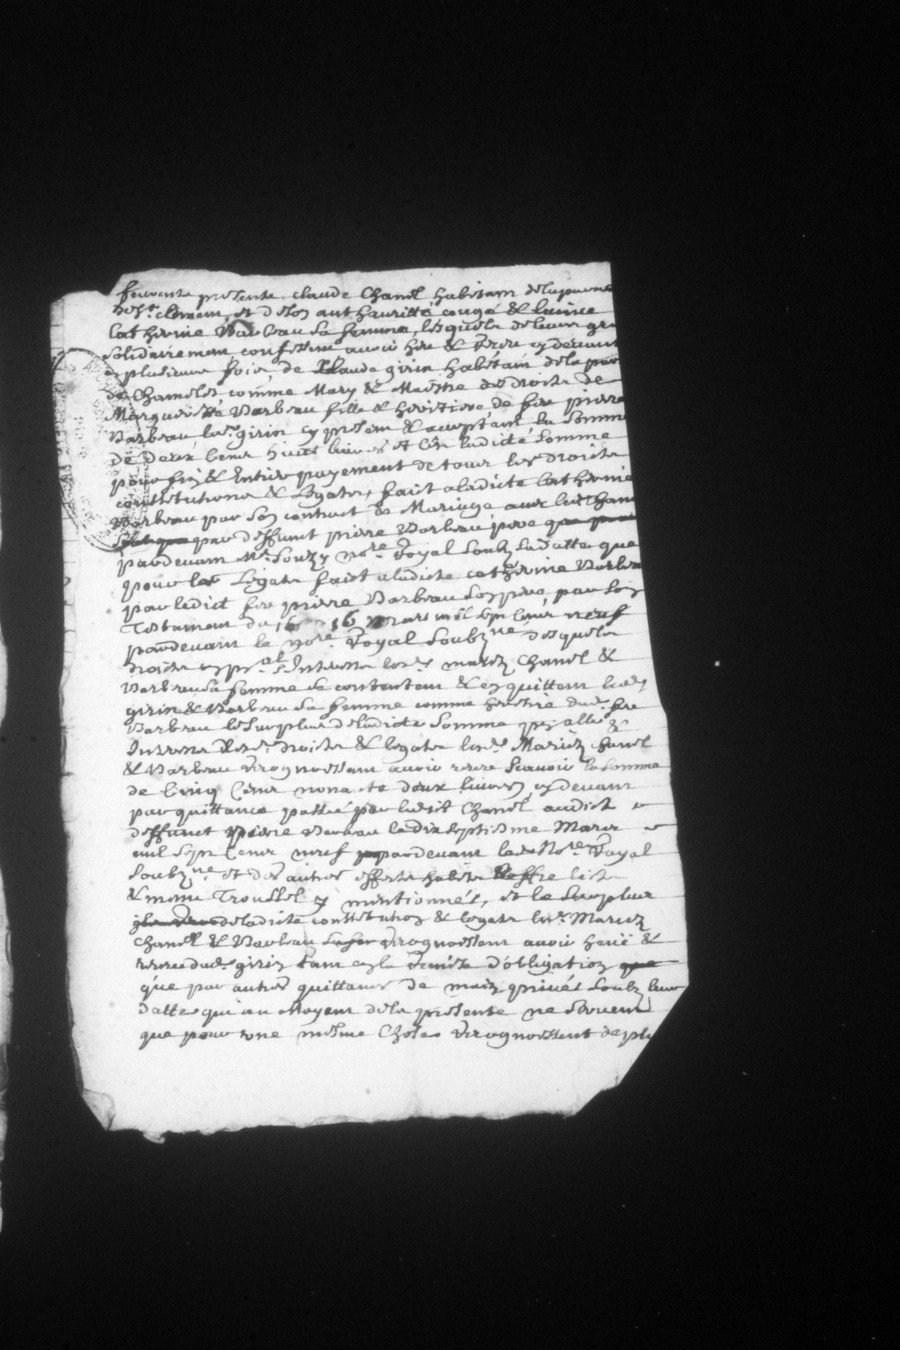 presente claude Chanel habitam dela
de st. clement, et de son authauritté congé & licince
Catherine Barbeau sa femme, lesquels deleur gre
solidairement confessent avoir heu & receu cy devant
a plusieurs fois de Claude girin habitam dela par
de Chamelet comme Mary & Maistre des droits de
Margueritte Barbeau fille & heritiere de feu pierre
Barbeau led. girin cy present & acceptant, la somme
de deux Cents huict livres et C'est ladicte somme
pour fin & Entier payement de tous les droits
constitutions & Legats, fait aladicte Catherine
Barbeau par son contract de Mariage avec led. Chan
par deffunt pierre Barbeau pere
pardevant Me. Souzy no.re Royal soubz sa datte que
pour les Legats faict aladicte catherine Barbea
par ledict feu pierre Barbeau son pere, par son
Testament du 16 mars mil sept Cents neuf
pardevant le no.re Royal soubz.ne desquels
droits en p.al & Interests les d. mariez Chanel &
Barbeau sa femme se contentent & en quittent led.
girin & Barbeau sa femme comme heritire dud. feu
Barbeau le surplus deladicte somme
Interests desd. droits & legats lesd. Mariez Chanel
& Barbeau recognoissant avoir receu scavoir la somme
de Cinq Cents nonante deux livres cy devant
par quittance passée par ledit Chanel audict
deffunct pierre Barbeau le dix septiesme Mars
mil sept Cents neuf pardevant led. No.re Royal
soubz.ne et des autres effects
& mene Troussel y mentionnés, et le surplus
deladicte constitution & legats lesd. Mariez
Chanel & Barbeau recognoissent avoir heüe &
receu dud. girin tant en la d'obligation
que par autres quittances de main privée soubz leur
datte qui au Moyen dela presente ne servent
que pour une mesme Chose recognoissent de plu